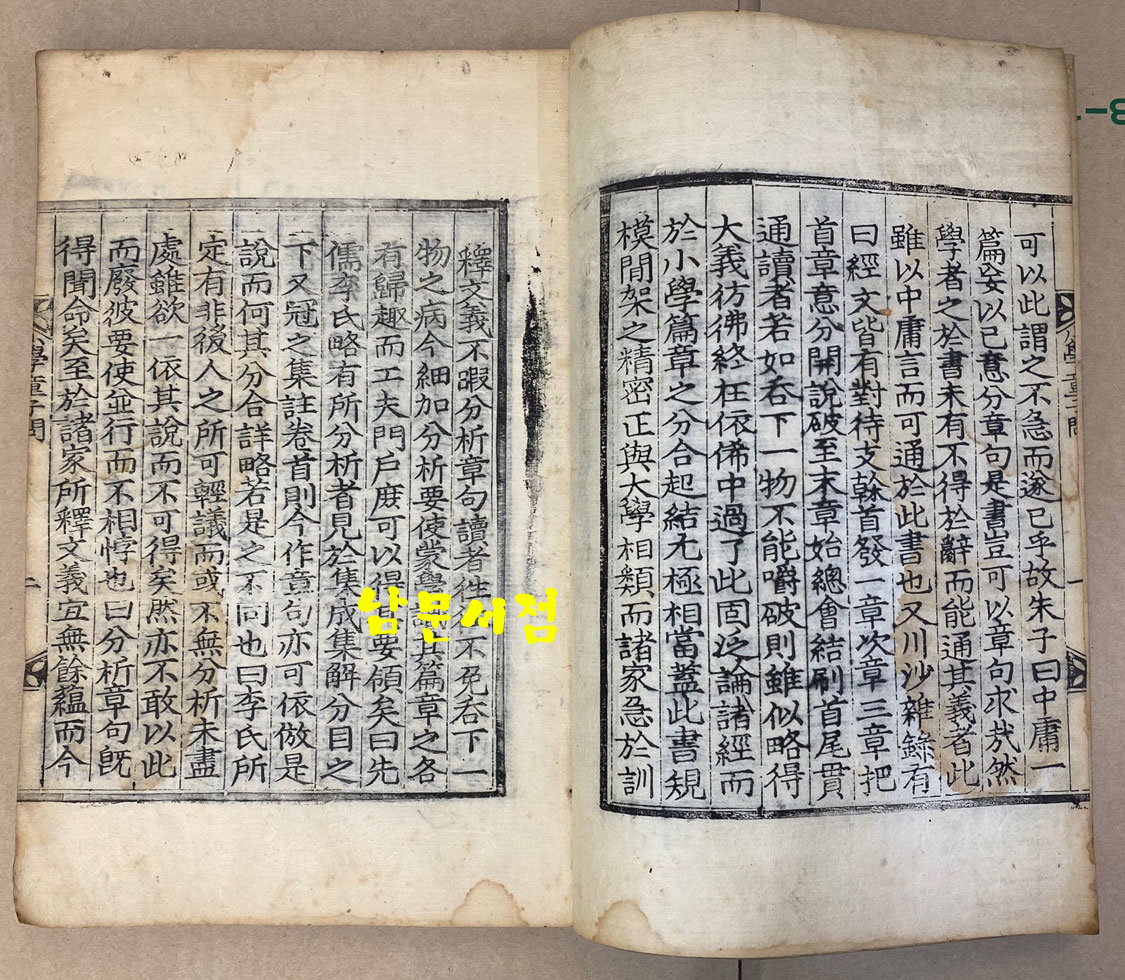 可以此謂之不急而遂已乎故朱子曰中庸一
篇妄以己意分章句是書豈可以章句求㢤然
學者之於書未有不得於辭而能通其義者此
雖以中庸言而可通於此書也又川沙雜錄有
曰經文皆有對待支榦首發一章次章三章把
首章意分開說破至末章始總會結刷首尾貫
通讀者若如吞下一物不能嚼破則雖似略得
大義彷彿終在依俙中過了此固泛論諸經而
於小學篇章之分合起結尤極相當蓋此書規
模間架之精密正與大學相類而諸家急於訓
釋文義不暇分析章句讀者徃徃不免吞下一
物之病今細加分析要使蒙學 其篇章之各
有歸趣而工夫門戶庶可以得 要領矣曰先
儒李氏略有所分析者見於集成集解分目之
下又冠之集註卷首則今作章句亦可依倣是
說而何其分合詳略若是之不同也曰李氏所
定有非後人之所可輕議而或不無分析未盡
處雖欲一依其說而不可得矣然亦不敢以此
而廢彼要使並行而不相悖也曰分析章句旣
得聞命矣至於諸家所釋文義宜無餘蘊而今
學章
一
二
남문서점